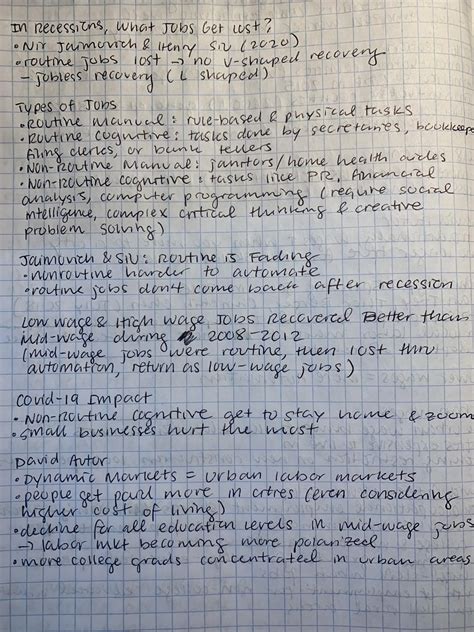 In recessions, What Jobs Get Lost?
• Nir Jaimovich & Henry Siu (2020)
• routine jobs lost → no v-shaped recovery
– jobless recovery (L shaped)
Types of Jobs
• Routine manual: rule-based & physical tasks
• Routine Cognitive: tasks done by secretaries, bookkeepe
filing clerks, or bank tellers
• Non-Routine Manual: janitors/home health aides
• Non-Routine Cognitive: tasks like PR, financial
analysis, computer programming (require social
intelligence, complex critical thinking & creative
problem solving)
Jaimovich & Siu: Routine is Fading
• nonroutine harder to automate
• routine jobs don't come back after recession
Low wage & High Wage Jobs Recovered Better than
mid-wage during 2008-2012
(mid-wage jobs were routine, then lost thru
automation, return as low-wage jobs)
Covid-19 Impact
• Non-Routine cognitive get to stay home & zoom
• small businesses hurt the most
David Autor
• Dynamic Markets = urban labor markets
• people get paid more in cities (even considering
higher cost of living)
• decline for all education levels in mid-wage jobs
→ labor mkt becoming more polarized
• more college grads concentrated in urban areas